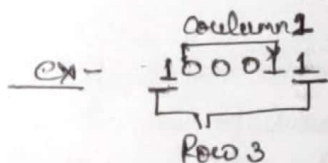 coulumn 1
ex- 1 0 0 0 1 1
Row 3